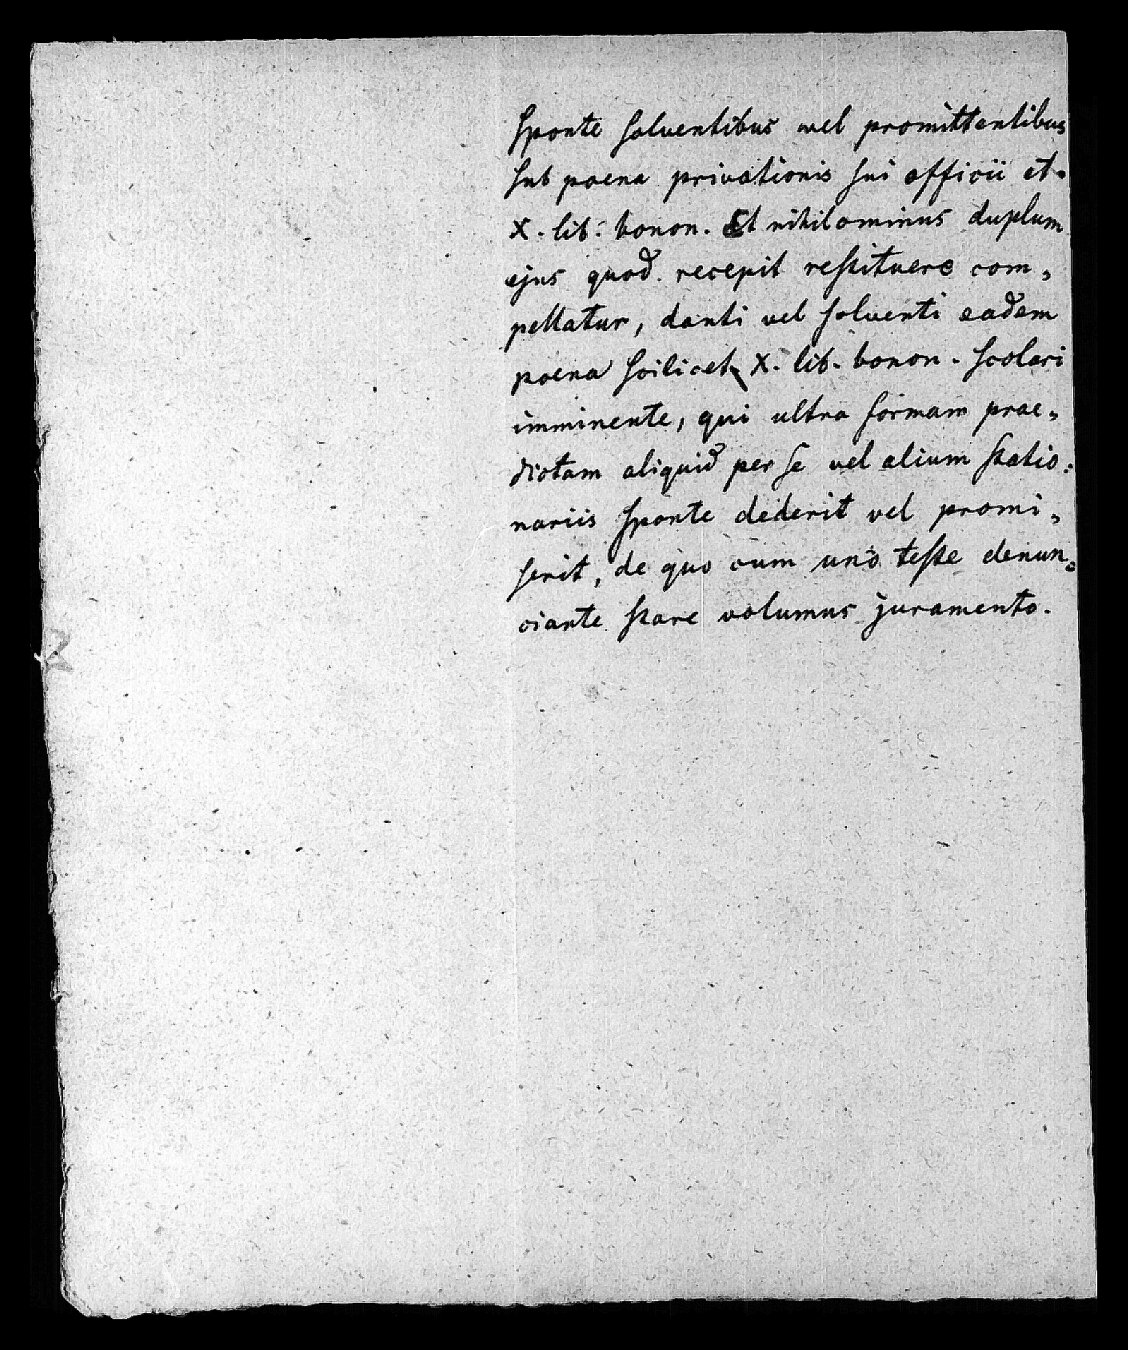 sponte solventibus vel promittentibus
sub poena privationis sui officii et
X. lib: bonon. Et nihilominus duplum
ejus quod recepit restituere com„
pellatur, danti vel solventi eadem
poena scilicet X. lib. bonon. scolari
imminente, qui ultra formam prae„
dictam aliquid per se vel alium statio„
nariis sponte dederit vel promi„
serit, de quo cum uno teste denun„
ciante stare volumus juramento.